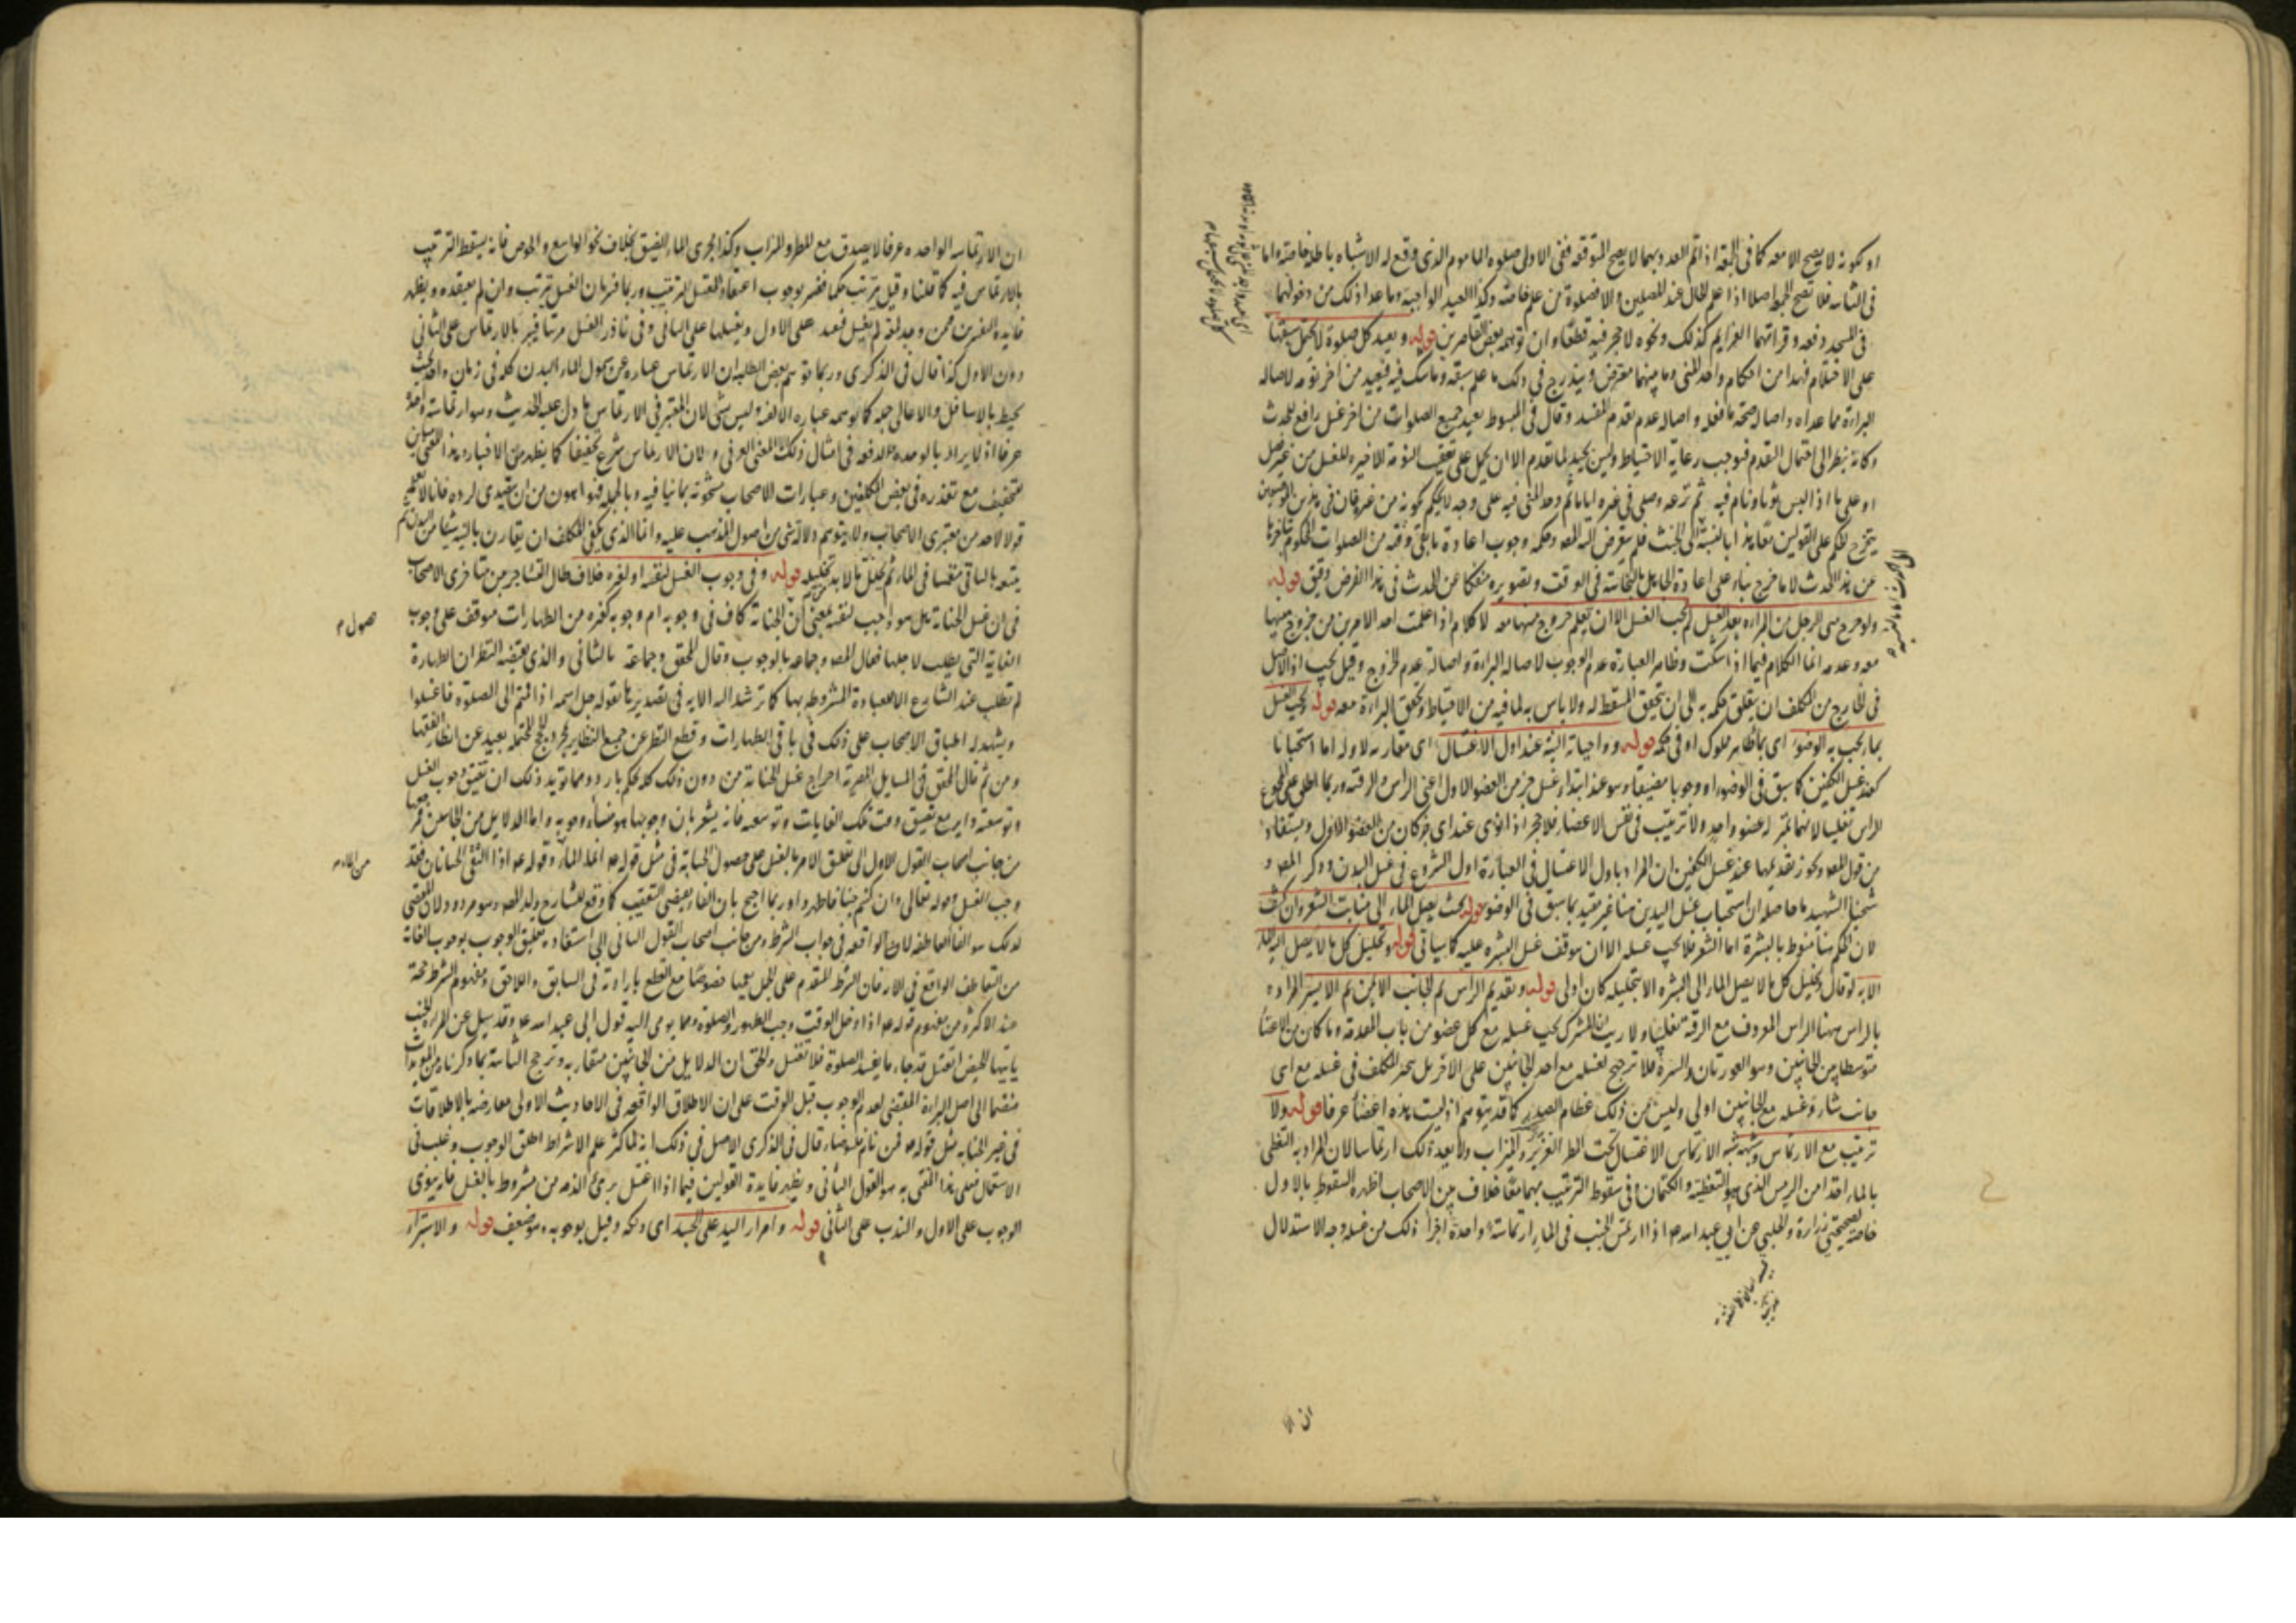 او لكونه لا يصح الا معه كما في الجمعة اذا تم العدد بهما لا يصح ففي الاولى صلوة الماموم الذي وقع له الاشتباه باطلة خاصة واما
في الثانية فلا تصح الجمعة اصلا اذا علم الحال عند المصلين والا فصلوة من علم خاصة وكذا العيد الواجبة وما عدا ذلك من دخولهما
في المسجد دفعة وقراتهما العزايم كذلك ونحوه لا حجر فيه قطعا وان توهمه بعض القاصرين قوله ويعيد كل صلوة لا يحتمل سبقها
على الاحتلام فهذا من احكام واجد المني وما بينهما معترض ويندرج في ذلك ما علم سبقه وما شك فيه فيعيد من اخر نومة لاصالة
البراءة مما عداه واصالة صحة ما فعله واصالة عدم تقدم المفسد وقال في المبسوط يعيد جميع الصلوات من اخر غسل رافع للحدث
وكانه نظر الى احتمال التقدم فوجب رعاية الاحتياط وليس بجيد لما تقدم الا ان يحمل على تعقيب النومة الاخيرة للغسل من غير فصل
او على ما اذا لبس ثوبا ونام فيه ثم نزعه وصلى في غيره اياما ثم وجد المني فيه على وجه لا يحكم بكونه من غيره فان في هذين الموضعين
يتخرج الحكم على القولين معا هذا بالنسبة الى الخبث فلم يتعرض اليه المص وحكمه وجوب اعادة ما بقي وقته من الصلوات المحكوم بتاخرها
عن هذا الحدث لا ما خرج بناء على اعادة الجاهل بالنجاسة في الوقت وتصويره منفكا عن الحدث في هذا الفرض دقيق قوله
ولو خرج مني الرجل من المراة بعد الغسل لم يجب الغسل الا ان يعلم خروج منيها معه لا كلام اذا علمت احد الامرين من خروج منيها
معه وعدمه انما الكلام فيما اذا شكت وظاهر العبارة عدم الوجوب لاصالة البراءة واصالة عدم الخروج وقيل يجب اذ الاصل
في الخارج من المكلف ان يتعلق حكمه به الى ان يتحقق المسقط له ولا باس به لما فيه من الاحتياط وتحقق البراءة معه قوله ويجب الغسل
بما يجب به الوضوء اي بماء طاهر مملوك او في حكمه قوله وواجباته النية عند اول الاغتسال اي مقارنة لاوله اما استحبابا
كعند غسل الكفين كما سبق في الوضوء او وجوبا مضيقا وهو عند ابتداء غسل جزء من العضو الاول اعني الراس والرقبة وربما اطلق على المجموع
الراس تغليبا لانهما بمنزلة عضو واحد ولا ترتيب في نفس الاعضاء فلا حجر اذا نوى عند اي جزء كان من العضو الاول ويستفاد
من قول المص ويجوز تقديمها عند غسل الكفين ان المراد باول الاغتسال في العبارة اول الشروع في غسل البدن وذكر المص و
شيخنا الشهيد ما حاصله ان استحباب غسل اليدين هنا غير مقيد بما سبق في الوضوء قوله بحيث يصل الماء الى منابت الشعر وان كثف
لان الحكم هنا منوط بالبشرة اما الشعر فلا يجب غسله الا ان يتوقف غسل البشرة عليه كما سياتي قوله وتخليل كل ما لا يصل اليه الماء
الا به لو قال وتخليل كل ما لا يصل الماء الى البشرة الا بتخليله كان اولى قوله وتقديم الراس ثم الجانب الايمن ثم الايسر المراد
بالراس هنا الراس المعروف مع الرقبة تغليبا ولا ريب ان المشترك يجب غسله مع كل عضو من باب المقدمة وما كان من الاعضاء
متوسطا بين الجانبين وهو العورتان والسرة فلا ترجيح لغسله مع احد الجانبين على الاخر بل يتخير المكلف في غسله مع اي
جانب شاء وغسله مع الجانبين اولى وليس من ذلك عظام الصدر كما قد يتوهم اذ ليست هذه اعضاء عرفا قوله ولا
ترتيب مع الارتماس وشبهه شبه الارتماس الاغتسال تحت المطر الغزير والميزاب ولا يعد ذلك ارتماسا لان المراد به التغطي
بالماء اخذا من الرمس الذي هو التغطية والكتمان وفي سقوط الترتيب بهما معا خلاف بين الاصحاب اظهره السقوط بالاول
خاصة لصحيحتي زرارة والحلبي عن ابي عبد الله ع اذا ارتمس الجنب في الماء ارتماسة واحدة اجزأ ذلك من غسله وجه الاستدلال
ان الا
ان الارتماسة الواحدة عرفا لا يصدق مع المطر والميزاب وكذا مجرى الماء الضيق بخلاف نحو الواسع والحوض فانه يسقط الترتيب
بالارتماس فيه كما قلنا وقيل يترتب حكما ففسر بوجوب اعتقاد المغتسل الترتيب وربما فسر بان الغسل يترتب وان لم يعتقده ويظهر
فائدة التفسيرين فيمن وجد لمعة لم يغسل فيعيد على الاول ويغسلها على الثاني وفي ناذر الغسل مرتبا فيبر بالارتماس على الثاني
دون الاول كذا قال في الذكرى وربما توهم بعض الطلبة ان الارتماس عبارة عن شمول الماء البدن كله في زمان واحد بحيث
يحيط بالاسافل والاعالي جملة كما توهمه عبارة الالفية وليس بشيء لان المعتبر في الارتماس ما دل عليه الحديث وهو ارتماسة واحدة
عرفا اذ لا يراد بالوحدة والدفعة في امثال ذلك الا المعنى العرفي ولان الارتماس شرع تخفيفا كما يظهر من الاخبار وهذا المعنى مباين
للتخفيف مع تعذره في بعض المكلفين وعبارات الاصحاب مشحونة بما ينافيه وبالجملة فهو اهون من ان يتصدى لرده فانا لا نعلم
قولا لاحد من معتبري الاصحاب ولا يتوهم دلالة شيء من اصول المذهب عليه وانما الذي يكفي المكلف ان يقارن بالنية شيئا من البدن ثم
يتبعه بالباقي منغمسا في الماء ثم يخلل ما لا بد تخليله قوله وفي وجوب الغسل لنفسه او لغيره خلاف طال التشاجر بين متاخري الاصحاب
في ان غسل الجنابة هل هو واجب لنفسه بمعنى ان الجنابة كاف في وجوبه ام وجوبه كغيره من الطهارات موقف على وجوب
حصول م
الغاية التي يطلب لاجلها فقال المص وجماعة بالوجوب وقال المحقق وجماعة بالثاني والذي يقتضيه النظر ان الطهارة
لم تطلب عند الشارع الا للعبادة المشروطة بها كما ترشد اليه الاية في تصديرها بقوله جل اسمه اذا قمتم الى الصلوة فاغسلوا
ويشهد له اطباق الاصحاب على ذلك في باقي الطهارات وقطع النظر عن جميع النظاير بمجرد الحجج المحتملة بعيد عن انظار الفقهاء
ومن ثم قال المحقق في المسايل المصرية اخراج غسل الجنابة من دون ذلك كله تحكم بارد ومما يؤيد ذلك ان تضيق وجوب الغسل
وتوسعته داير مع تضيق وقت تلك الغايات وتوسعته فانه يشعر بان وجوبها هو منشاء وجوبه واما الدلايل من الجانبين
من جانب اصحاب القول الاول الى تعليق الامر بالغسل على حصول الجنابة في مثل قوله ع انما الماء وقوله ع اذا التقى الختانان فقد
من الماء م
وجب الغسل وقوله تعالى وان كنتم جنبا فاطهروا وربما احتج بان الفاء يقتضي التعقيب كما وقع للشارح ولد المص وهو مردود لان المقتضي
لذلك هو الفاء العاطفة لا الواقعة في جواب الشرط ومن جانب اصحاب القول الثاني الى استفادة تعليق الوجوب بوجوب الغاية
من التعاطف الواقع في الاية فان الشرط المتقدم على الجمل يعمها خصوصا مع القطع بارادته في السابق واللاحق ومفهوم الشرط حجة
عند الاكثر ومن مفهوم قوله ع اذا دخل الوقت وجب الطهور والصلوة ومما يومي اليه قول ابي عبد الله ع وقد سئل عن المراة الجنب
ياتيها الحيض اتغتسل قد جاء ما يفسد الصلوة فلا تغتسل والحق ان الدلايل من الجانبين متقاربة وترجح الثانية بما ذكرناه من المؤيدات
منضما الى اصل البراءة المقتضي لعدم الوجوب قبل الوقت على ان الاطلاق الواقعة في الاحاديث الاولى معارضة بالاطلاقات
في غير الجنابة مثل قوله ع فمن نام فليتوضأ قال في الذكرى الاصل في ذلك انه لما كثر علم الاشتراط اطلق الوجوب وغلب في
الاستعمال فعلى هذا المفتى به هو القول الثاني ويظهر فايدة القولين فيما اذا اغتسل بريء الذمة من مشروط بالغسل فانه ينوي
الوجوب على الاول والندب على الثاني قوله وامرار اليد على الجسد اي دلكه وقيل بوجوبه وهو ضعيف قوله والاستبراء